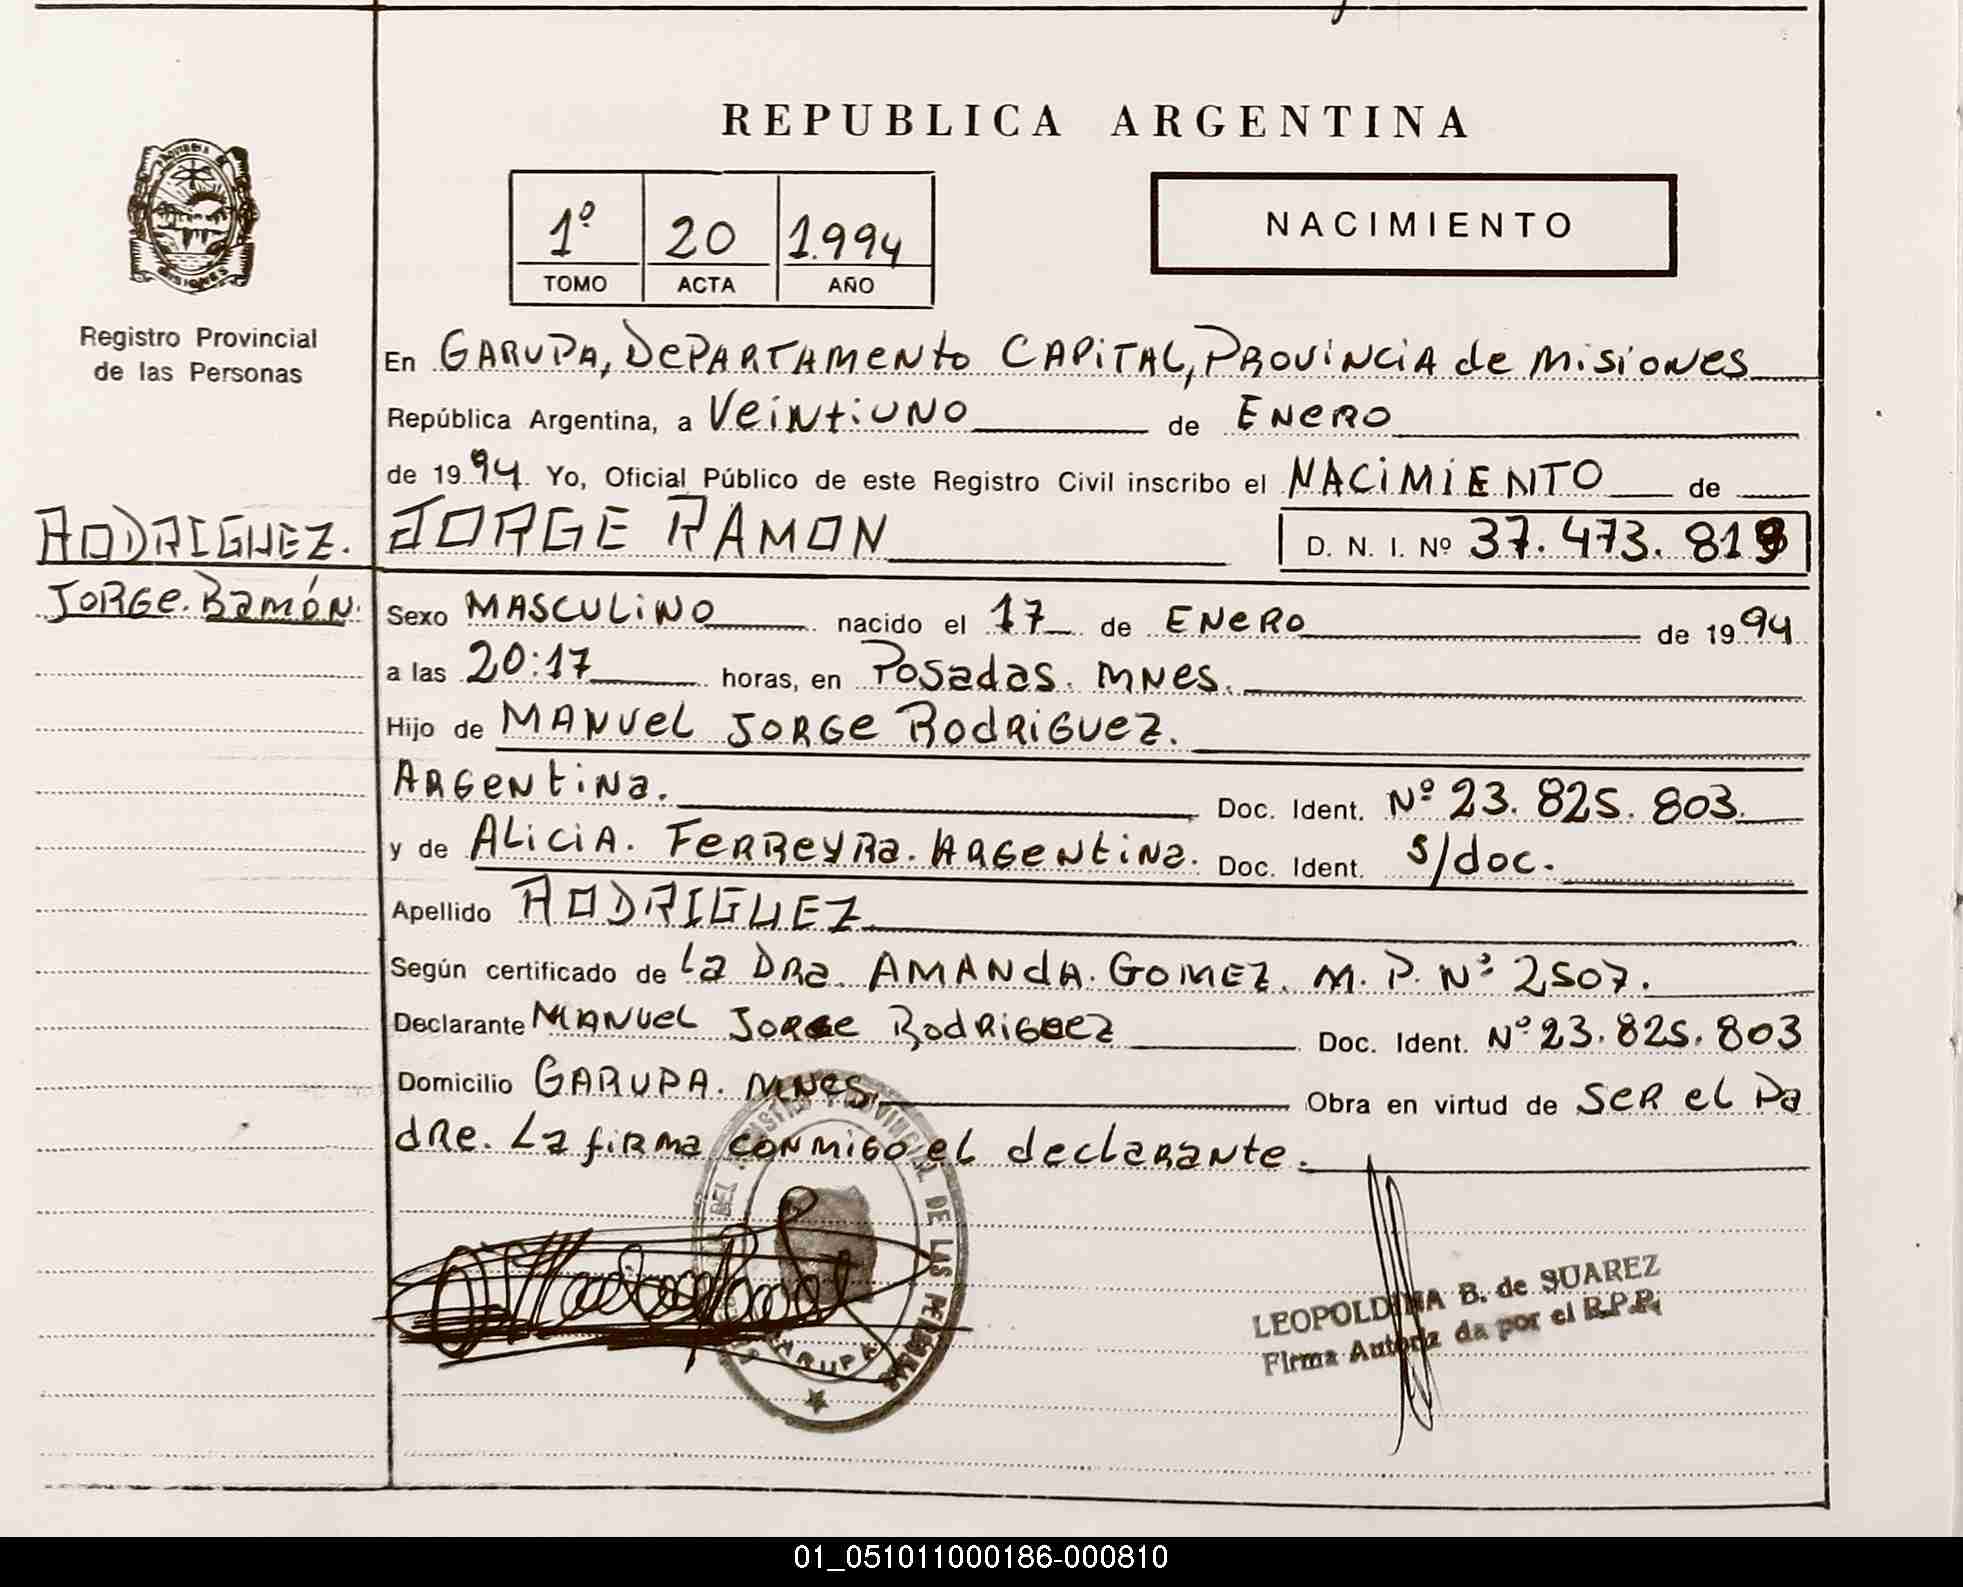 REPUBLICA ARGENTINA
1º 20 1.994
TOMO ACTA AÑO
NACIMIENTO
Registro Provincial
de las Personas
RODRIGUEZ.
Jorge. Ramón.
En GARUPA, DePARTAMENto CAPITAL, PROVINCIA de MISIONES
República Argentina, a Veintiuno de ENERO
de 1994 Yo, Oficial Público de este Registro Civil inscribo el NACIMIENTO de
JORGE RAMON D. N. I. Nº 37.473.81
Sexo MASCULINO nacido el 17 de ENERO de 1994
a las 20:17 horas, en Posadas. MNes.
Hijo de MANUEL JORGE RodRIGuez.
ARGENtina. Doc. Ident. Nº 23.825.803.
y de ALICIA. FeRReyRa. ARGENtina. Doc. Ident. s/doc.
Apellido RODRIGUEZ
Según certificado de La DRa. AMANdA. GOMEZ. M. P. Nº 2507.
Declarante MANUEL JORGE RodRIGuez Doc. Ident. Nº 23.825.803
Domicilio GARUPA. MNes. Obra en virtud de SER el Pa
dRe. La fiRma CONMIGO el declaRaNte.
DEL REGISTRO PROVINCIAL DE LAS PERSONAS
GARUPA
LEOPOLDINA B. de SUAREZ
Firma Autoriz da por el R.P.P.
01_051011000186-000810